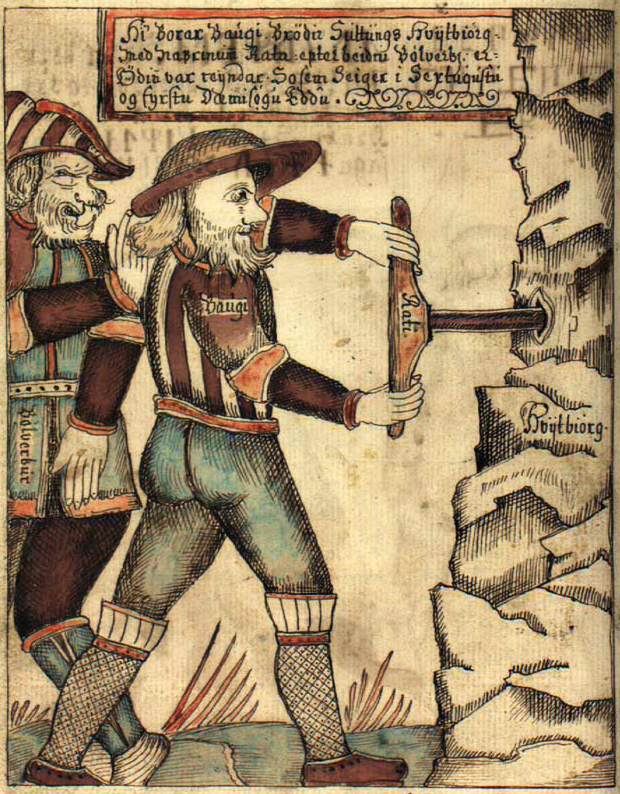 Hi[er] Borar Baugi, Brödir Suttungs Hvÿtbiörg.
med nafrinum Rata epter beidni Bölverks. er
Ödin var reyndar. So sem Seiger i Sextugustu
og fyrstu Dæmisögu Eddu.
Baugi
Rati
Bölverkur
Hvÿtbiörg.